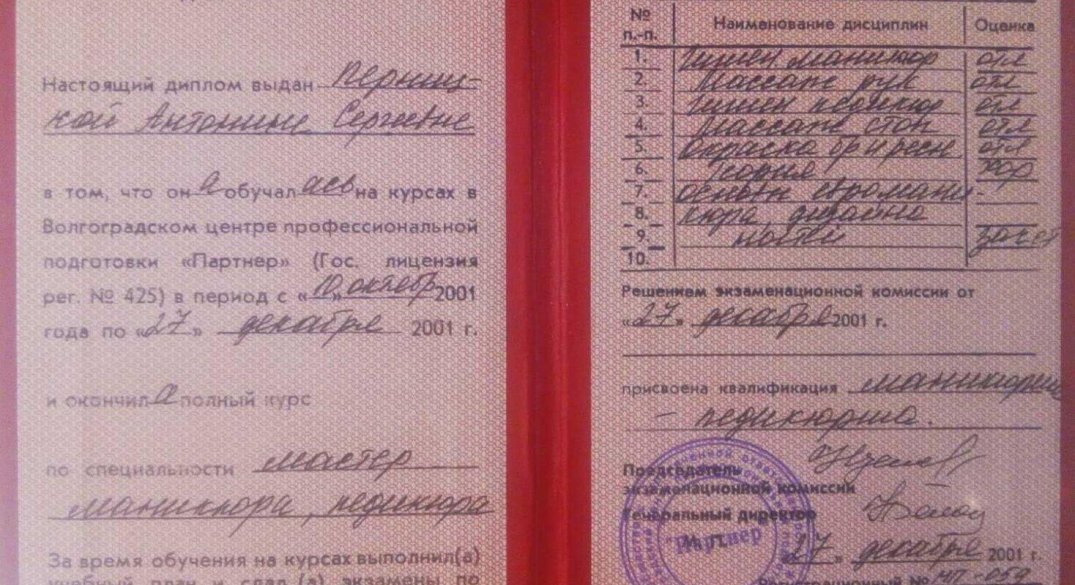 Настоящий диплом выдан Перниц-
кой Антонине Сергеевне
в том, что он а обучал ась на курсах в
Волгоградском центре профессиональной
подготовки «Партнер» (Гос. лицензия
рег. № 425) в период с «10» октябр 2001
года по «27» декабря 2001 г.
и окончил а полный курс
по специальности мастер
маникюра, педикюра
За время обучения на курсах выполнил(а)
учебный план и сдал (а) экзамены по
№ п.-п. Наименование дисциплин Оценка
1. Гигиен маникюр отл
2. Массаж рук отл
3. Гигиен педикюр отл
4. Массаж стоп отл
5. Окраска бр и ресн. отл
6. Теория хор
7. основы евромани-
8. кюра, дизайна
9. ногтей зачет
10.
Решением экзаменационной комиссии от
«27» декабря 2001 г.
присвоена квалификация маникюрша
- педикюрша.
Председатель
экзаменационной комиссии
Генеральный директор
М.П. "Партнер"
«27» декабря 2001 г.
Регистрационный №